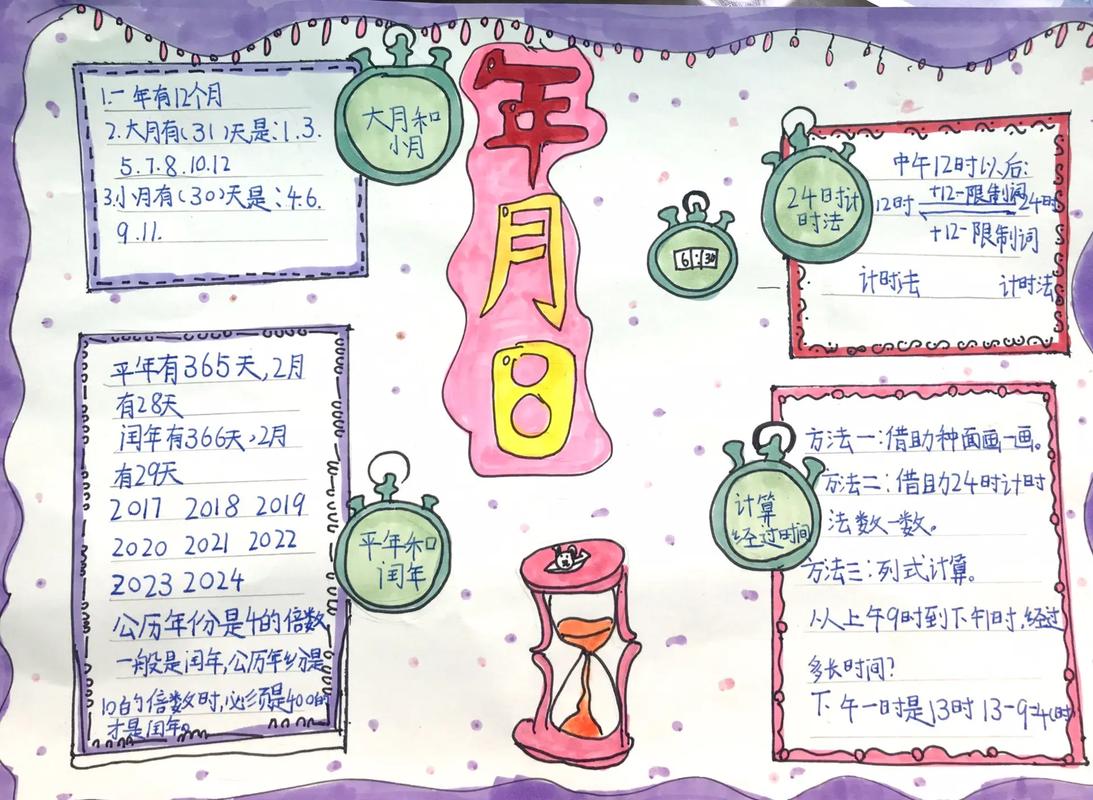 年
月
日
大月和
小月
1.一年有12个月
2.大月有(31)天是:1.3.
5.7.8.10.12
3.小月有(30)天是:4.6.
9.11.
平年和
闰年
平年有365天,2月
有28天
闰年有366天,2月
有29天
2017 2018 2019
2020 2021 2022
2023 2024
公历年份是4的倍数
一般是闰年,公历年份是
10百的倍数时,必须是400的
才是闰年。
6:30
24时计
时法
中午12时以后:
+12-限制词
12时 24时
+12-限制词
计时法 计时法
计算
经过时间
方法一:借助种面画一画。
方法二:借助24时计时
法数一数。
方法三:列式计算。
从上午9时到下午1时,经过
多长时间?
下午一时是13时 13-9=4(时)